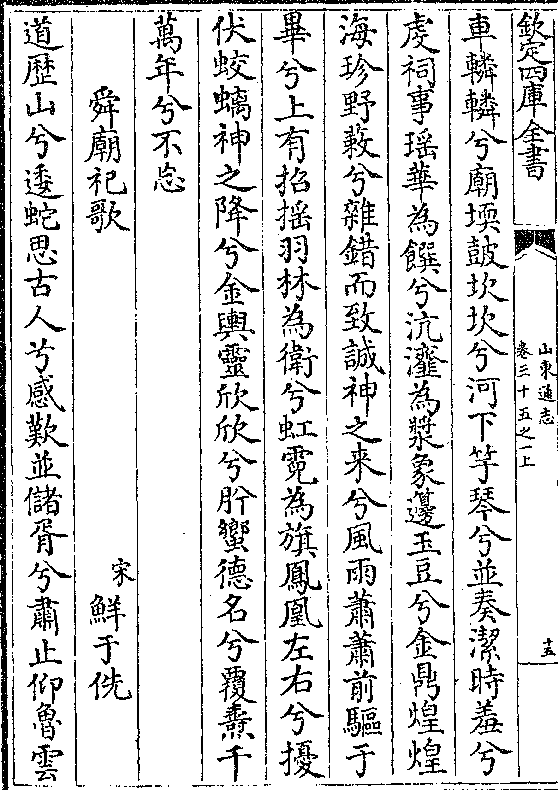 欽定四庫全書
山東通志
卷三十五之一上
十五
車轔轔兮廟堧鼓坎坎兮河下竽琴兮並奏潔時羞兮
虔祠事瑶華為饌兮沆瀣為漿象籩玉豆兮金鼎煌煌
海珍野蔌兮雜錯而致誠神之来兮風雨蕭蕭前驅于
畢兮上有招摇羽林為衛兮虹霓為旗鳳凰左右兮擾
伏蛟螭神之降兮金輿靈欣欣兮肸蠁德名兮覆燾千
萬年兮不忘
舜廟祀歌
宋
鮮于侁
道歴山兮逶蛇思古人兮感歎並儲胥兮肅止仰魯雲